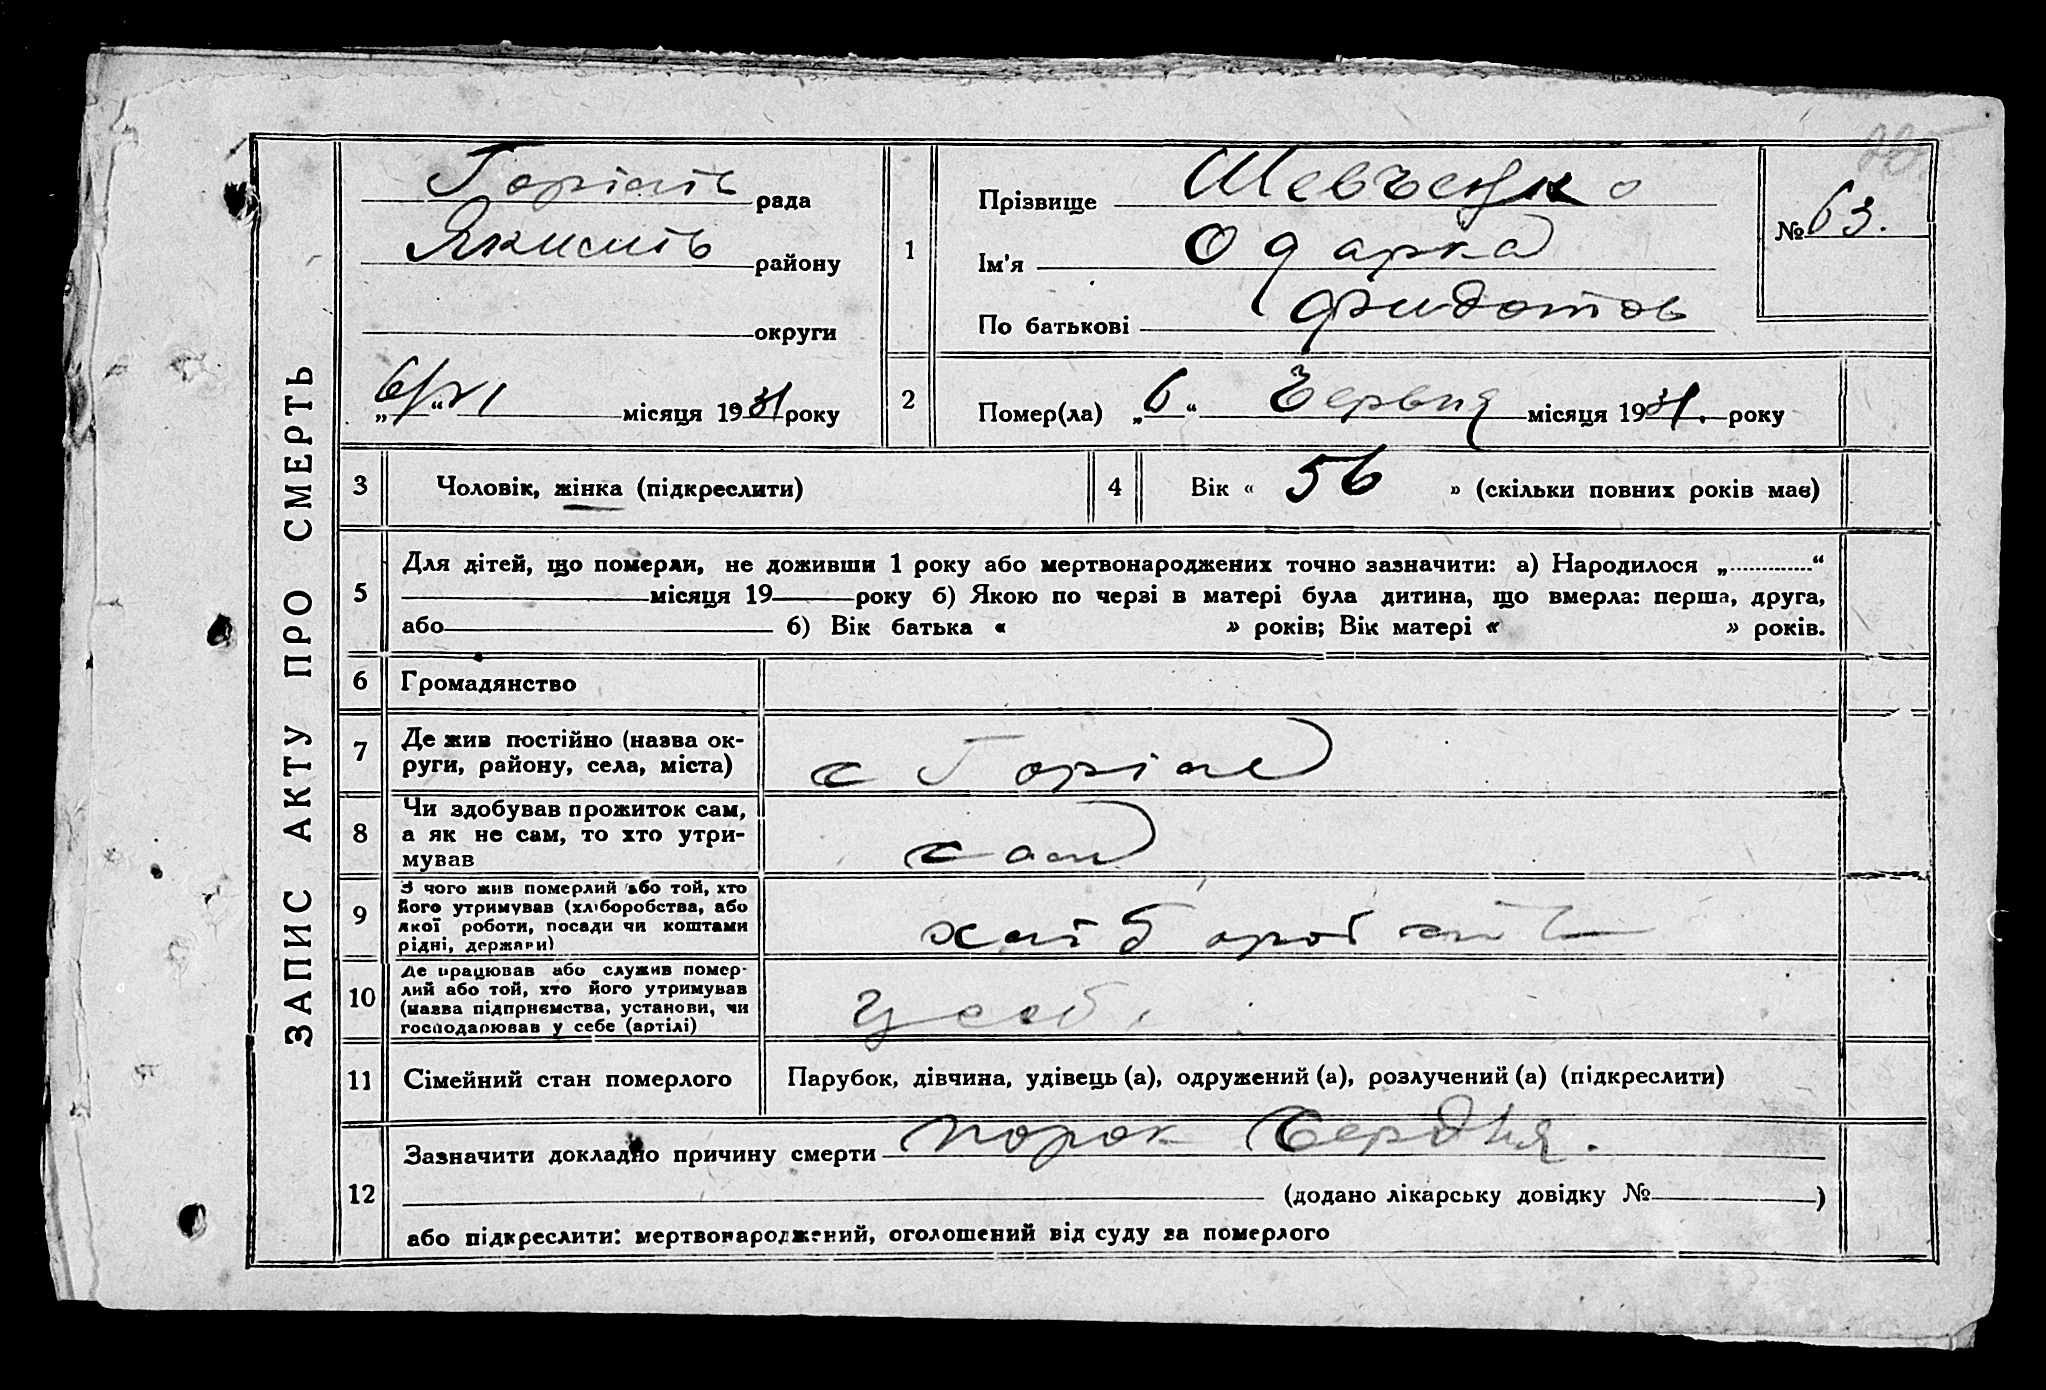 ЗАПИС АКТУ ПРО СМЕРТЬ
рада
району
округи
„6/VI“ місяця 1931 року
1
Прізвище Шевченко
Ім'я Одарка
По батькові Фидотов
№ 63.
2
Помер(ла) „6“ Червня місяця 1931. року
3
Чоловік, жінка (підкреслити)
4
Вік « 56 » (скільки повних років має)
5
Для дітей, що померли, не доживши 1 року або мертвонароджених точно зазначити: а) Народилося „ “
місяця 19 року б) Якою по черзі в матері була дитина, що вмерла: перша, друга,
або б) Вік батька « » років; Вік матері « » років.
6
Громадянство
7
Де жив постійно (назва ок-
руги, району, села, міста)
с
8
Чи здобував прожиток сам,
а як не сам, то хто утри-
мував
сам
9
З чого жив померлий або той, хто
його утримував (хліборобства, або
якої роботи, посади чи коштами
рідні, держави)
10
Де працював або служив помер-
лий або той, хто його утримував
(назва підприємства, установи, чи
господарював у себе (артілі)
у себ.
11
Сімейний стан померлого
Парубок, дівчина, удівець (а), одружений (а), розлучений (а) (підкреслити)
12
Зазначити докладно причину смерти порок Сердця.
(додано лікарську довідку № )
або підкреслити: мертвонароджений, оголошений від суду за померлого